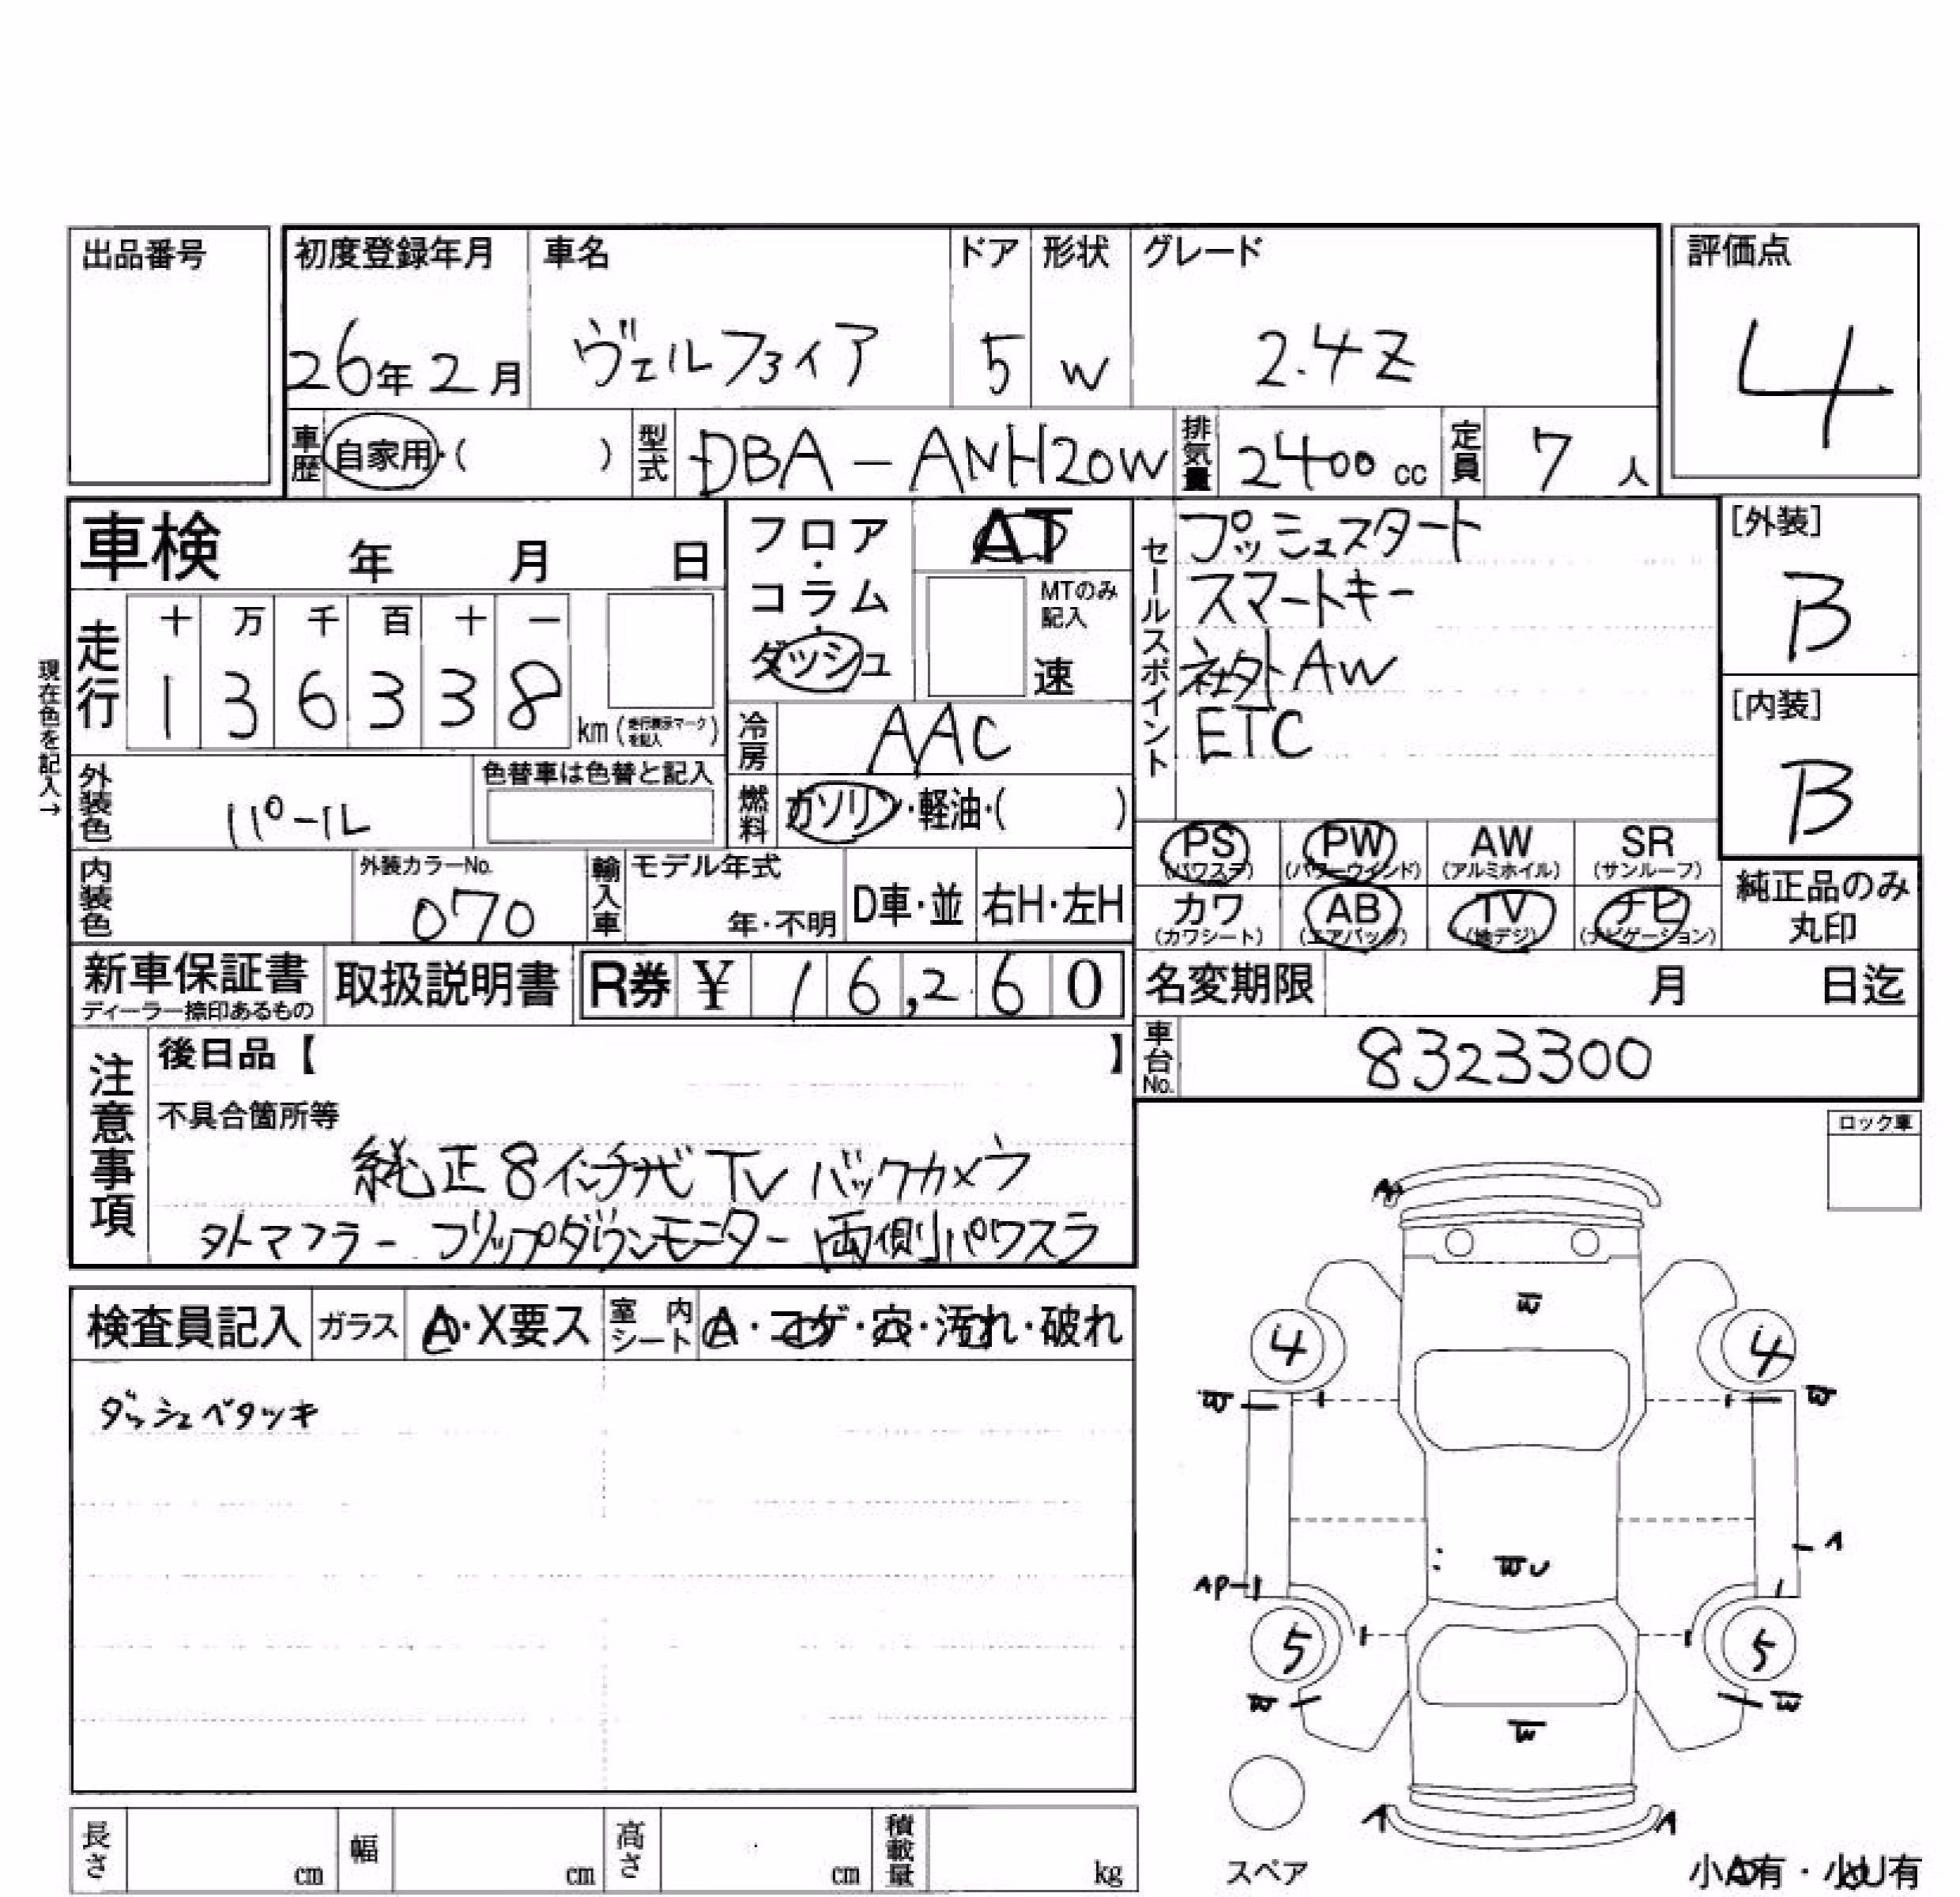 出品番号
初度登録年月 車名 ドア 形状 グレード 評価点
26年2月 ヴェルファイア 5 W 2.4Z 4
車歴 自家用・( ) 型式 DBA-ANH20W 排気量 2400cc 定員 7人
車検 年 月 日
フロア・コラム・ダッシュ AT
MTのみ記入
速
セールスポイント
プッシュスタート
スマートキー
社外AW
ETC
[外装]
B
[内装]
B
現在色を記入→
走行 十 万 千 百 十 一
1 3 6 3 3 8 km(走行表示マークを記入)
冷房 AAC
外装色 パール 色替車は色替と記入
燃料 ガソリン・軽油・( )
PS PW AW SR
(パワステ) (パワーウインド) (アルミホイル) (サンルーフ)
カワ AB TV ナビ
(カワシート) (エアバッグ) (地デジ) (ナビゲーション)
純正品のみ
丸印
内装色 外装カラーNo. 070 輸入車 モデル年式 年・不明 D車・並 右H・左H
新車保証書 取扱説明書 R券 ¥ 16,260
ディーラー捺印あるもの
名変期限 月 日迄
車台No. 8323300
注意事項
後日品【 】
不具合箇所等
純正8インチナビ TV バックカメラ
外マフラー フリップダウンモニター 両側パワスラ
ロック車
検査員記入 ガラス A・X要ス 室内シート A・コゲ・穴・汚れ・破れ
ダッシュベタツキ
W
4 4
W W
A
WU
AP-1
5 5
W W
W
A A
スペア
小A有・小U有
長さ cm 幅 cm 高さ cm 積載量 kg